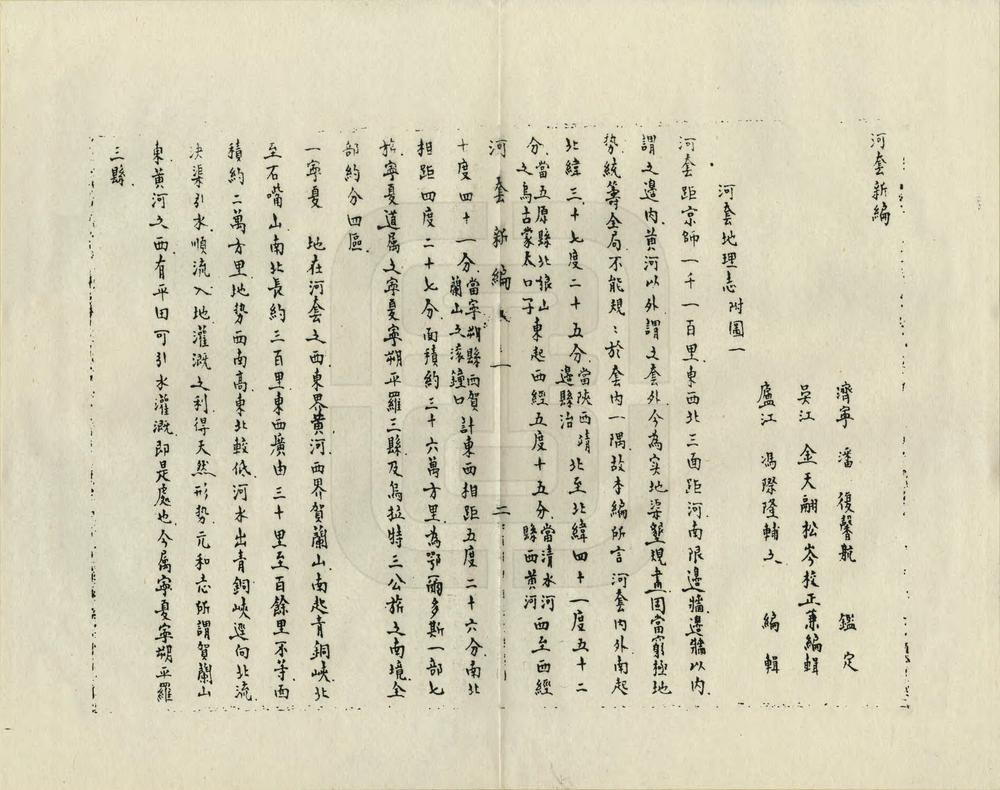 河套新編
濟寧 潘復馨航 鑑定
吳江 金天翮松岑校正兼編輯
廬江 馮際隆輔之 編輯
河套地理志 附圖一
河套距京師一千一百里東西北三面距河南限邊牆邊牆以內
謂之邊內黃河以外謂之套外今為實地渠墾規畫固當窮極地
勢統籌全局不能規規於套內一隅故本編所言河套內外南起
北緯三十七度二十五分當陝西靖邊縣治北至北緯四十一度五十二
分當五原縣北狼山之烏古蒙太口子東起西經五度十五分當清水河縣西黃河西至西經
河套新編 卷一 二
十度四十一分當寧朔縣西賀蘭山之滾鐘口計東西相距五度二十六分南北
相距四度二十七分面積約三十六萬方里為鄂爾多斯一部七
旂寧夏道屬之寧夏寧朔平羅三縣及烏拉特三公旂之南境全
部約分四區
一寧夏 地在河套之西東界黃河西界賀蘭山南起青銅峽北
至石嘴山南北長約三百里東西廣由三十里至百餘里不等面
積約二萬方里地勢西南高東北較低河水出青銅峽逕向北流
決渠引水順流入地灌溉之利得天然形勢元和志所謂賀蘭山
東黃河之西有平田可引水灌溉即是處也今屬寧夏寧朔平羅
三縣